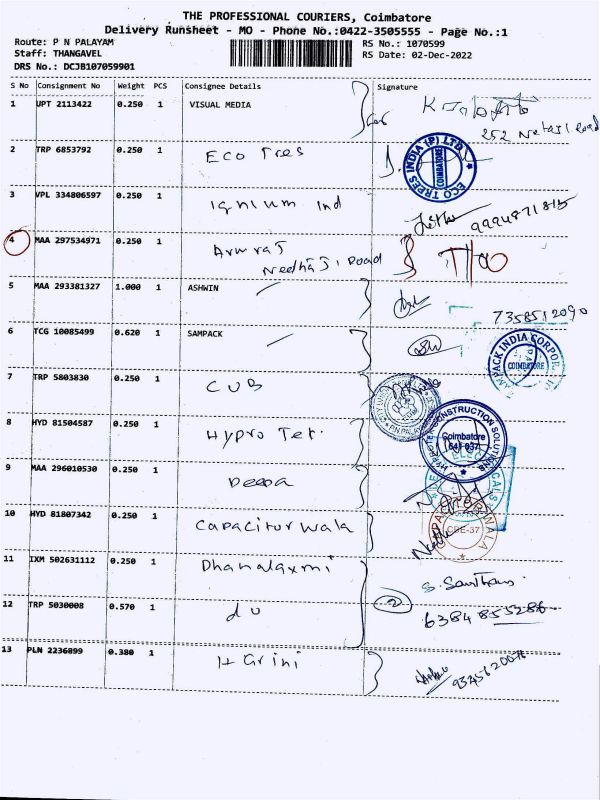 THE PROFESSIONAL COURIERS, Coimbatore
Delivery Runsheet - MO - Phone No.:0422-3505555 - Page No.:1
Route: P N PALAYAM
Staff: THANGAVEL
DRS No.: DCJB107059901
RS No.: 1070599
RS Date: 02-Dec-2022
S No Consignment No Weight PCS Consignee Details Signature
1 UPT 2113422 0.250 1 VISUAL MEDIA
252 Netaji Road
2 TRP 6853792 0.250 1 Eco Tres
ECO TREES INDIA (P) LTD. COIMBATORE
3 VPL 334806597 0.250 1 Ignium Ind
4 MAA 297534971 0.250 1
Road
5 MAA 293381327 1.000 1 ASHWIN
7358512090
6 TCG 10085499 0.620 1 SAMPACK
COIMBATORE
7 TRP 5803830 0.250 1 CUB
8 HYD 81504587 0.250 1 Hypro Tet.
CONSTRUCTION SOLUTIONS Coimbatore 641 037
9 MAA 296010530 0.250 1 Deepa
10 HYD 81807342 0.250 1 Capaciturwala
CBE-37
11 IXM 502631112 0.250 1 Dhanalaxmi
12 TRP 5030008 0.570 1 do
2
6384855286
13 PLN 2236899 0.380 1